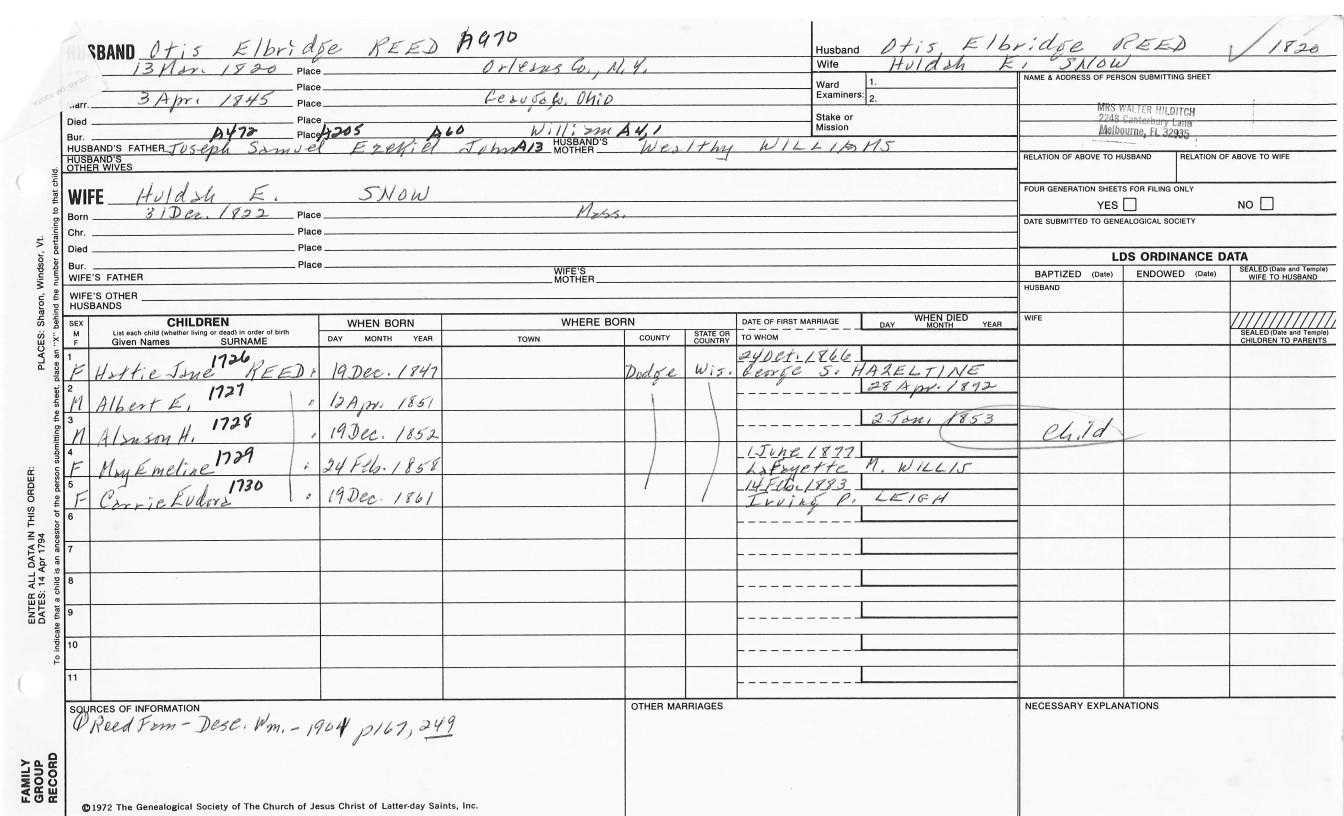 HUSBAND Otis Elbridge REED A970
13 Mar. 1820 Place Orleans Co., N.Y.
Place
Marr. 3 Apr. 1845 Place Geauga Co. Ohio
Died Place
Bur. A472 Place A205 A60 William A4,1
HUSBAND'S FATHER Joseph Samuel Ezekiel John A13 HUSBAND'S MOTHER Wealthy WILLIAMS
HUSBAND'S OTHER WIVES
Husband Otis Elbridge REED ✓ 1820
Wife Huldah E. SNOW
Ward Examiners: 1.
2.
Stake or Mission
NAME & ADDRESS OF PERSON SUBMITTING SHEET
MRS WALTER HILDITCH
2248 Canterbury Lane
Melbourne, FL 32935
RELATION OF ABOVE TO HUSBAND RELATION OF ABOVE TO WIFE
FOUR GENERATION SHEETS FOR FILING ONLY
YES NO
DATE SUBMITTED TO GENEALOGICAL SOCIETY
WIFE Huldah E. SNOW
Born 31 Dec. 1822 Place Mass.
Chr. Place
Died Place
Bur. Place
WIFE'S FATHER WIFE'S MOTHER
WIFE'S OTHER HUSBANDS
LDS ORDINANCE DATA
BAPTIZED (Date) ENDOWED (Date) SEALED (Date and Temple) WIFE TO HUSBAND
HUSBAND
WIFE
SEALED (Date and Temple) CHILDREN TO PARENTS
SEX M F
CHILDREN
List each child (whether living or dead) in order of birth
Given Names SURNAME
WHEN BORN
DAY MONTH YEAR
WHERE BORN
TOWN COUNTY STATE OR COUNTRY
DATE OF FIRST MARRIAGE
TO WHOM
WHEN DIED
DAY MONTH YEAR
1 F Hattie Jane 1726 REED 19 Dec. 1847 Dodge Wis. 24 Oct. 1866
George S. HAZELTINE
2 M Albert E. 1727 " 12 Apr. 1851 28 Apr. 1872
3 M Alanson H. 1728 " 19 Dec. 1852 2 Jan. 1853 Child
4 F May Emeline 1729 " 24 Feb. 1858 1 June 1877
LaFayette M. WILLIS
5 F Carrie Eudora 1730 " 19 Dec. 1861 14 Feb. 1883
Irving P. LEIGH
6
7
8
9
10
11
SOURCES OF INFORMATION
① Reed Fam - Desc. Wm. - 1904 p167, 249
OTHER MARRIAGES
NECESSARY EXPLANATIONS
©1972 The Genealogical Society of The Church of Jesus Christ of Latter-day Saints, Inc.
FAMILY GROUP RECORD
ENTER ALL DATA IN THIS ORDER:
DATES: 14 Apr 1794
PLACES: Sharon, Windsor, Vt.
To indicate that a child is an ancestor of the person submitting the sheet, place an "X" behind the number pertaining to that child.